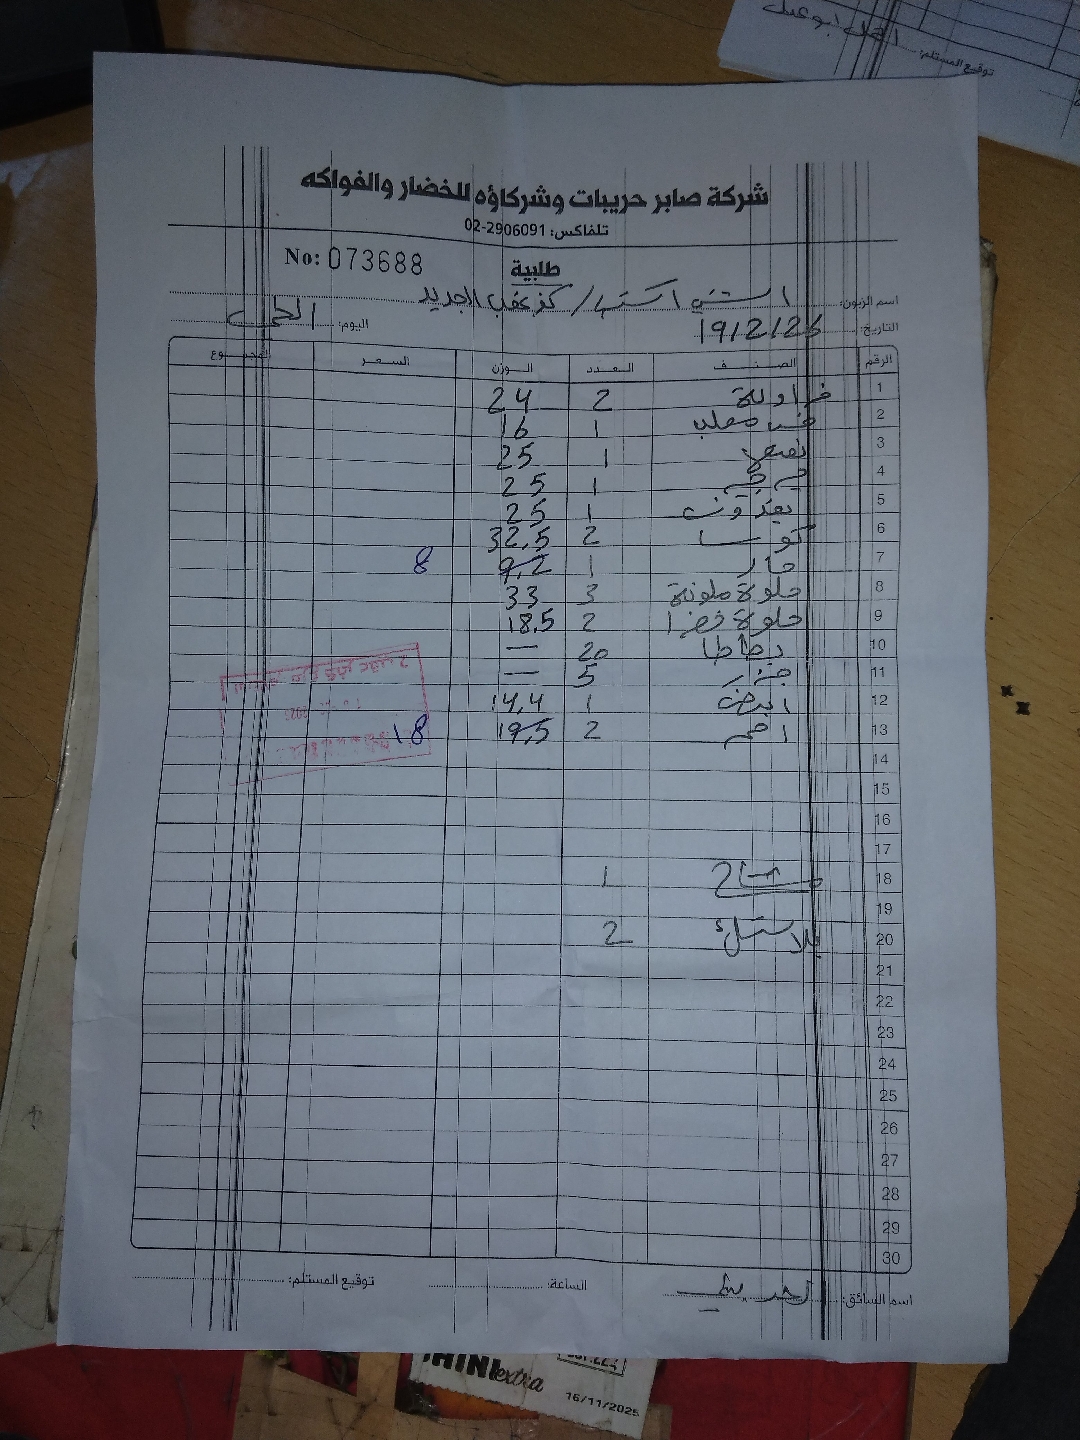 توقيع المستلم:
شركة صابر حريبات وشركاؤه للخضار والفواكه
تلفاكس: 02-2906091
No: 073688
طلبية
اسم الزبون: / كفر عقب الجديد
التاريخ: 19/2/26 اليوم:
الرقم الصنف العدد الوزن السعر المجموع
1 فراولة 2 24
2 1 16
3 نعنع 1 25
4 1 25
5 بقدونس 1 25
6 كوسا 2 32,5
7 حار 1 9,2 8
8 حلوة ملونة 3 33
9 حلوة خضرا 2 18,5
10 بطاطا 20 —
11 جزر 5 —
12 ابيض 1 14,4
13 احمر 2 19,5 18
14
15
16
17
18 مشتاح 1
19
20 بلاستيك 2
21
22
23
24
25
26
27
28
29
30
اسم السائق: الساعة: توقيع المستلم:
extra
16/11/2025